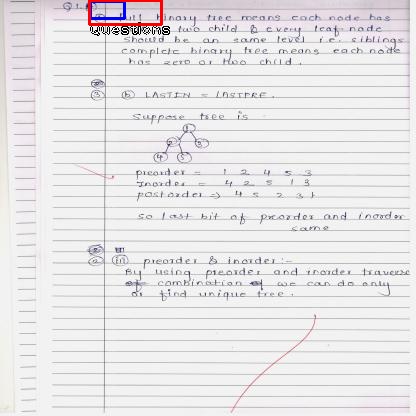 Q1.
Full binary tree means each node has
two child & every leaf node
should be an same level i.e. siblings
complete binary tree means each node
has zero or two child.
Questions
③ ⓑ LASTIN = LASTPRE.
Suppose tree is
1
2 3
4 5
preorder = 1 2 4 5 3
Inorder = 4 2 5 1 3
postorder => 4 5 2 3 1
So last bit of preorder and inorder
same
ⓐ (iii) preorder & inorder :-
By using preorder and inorder traverse
combination of we can do only
or find unique tree.